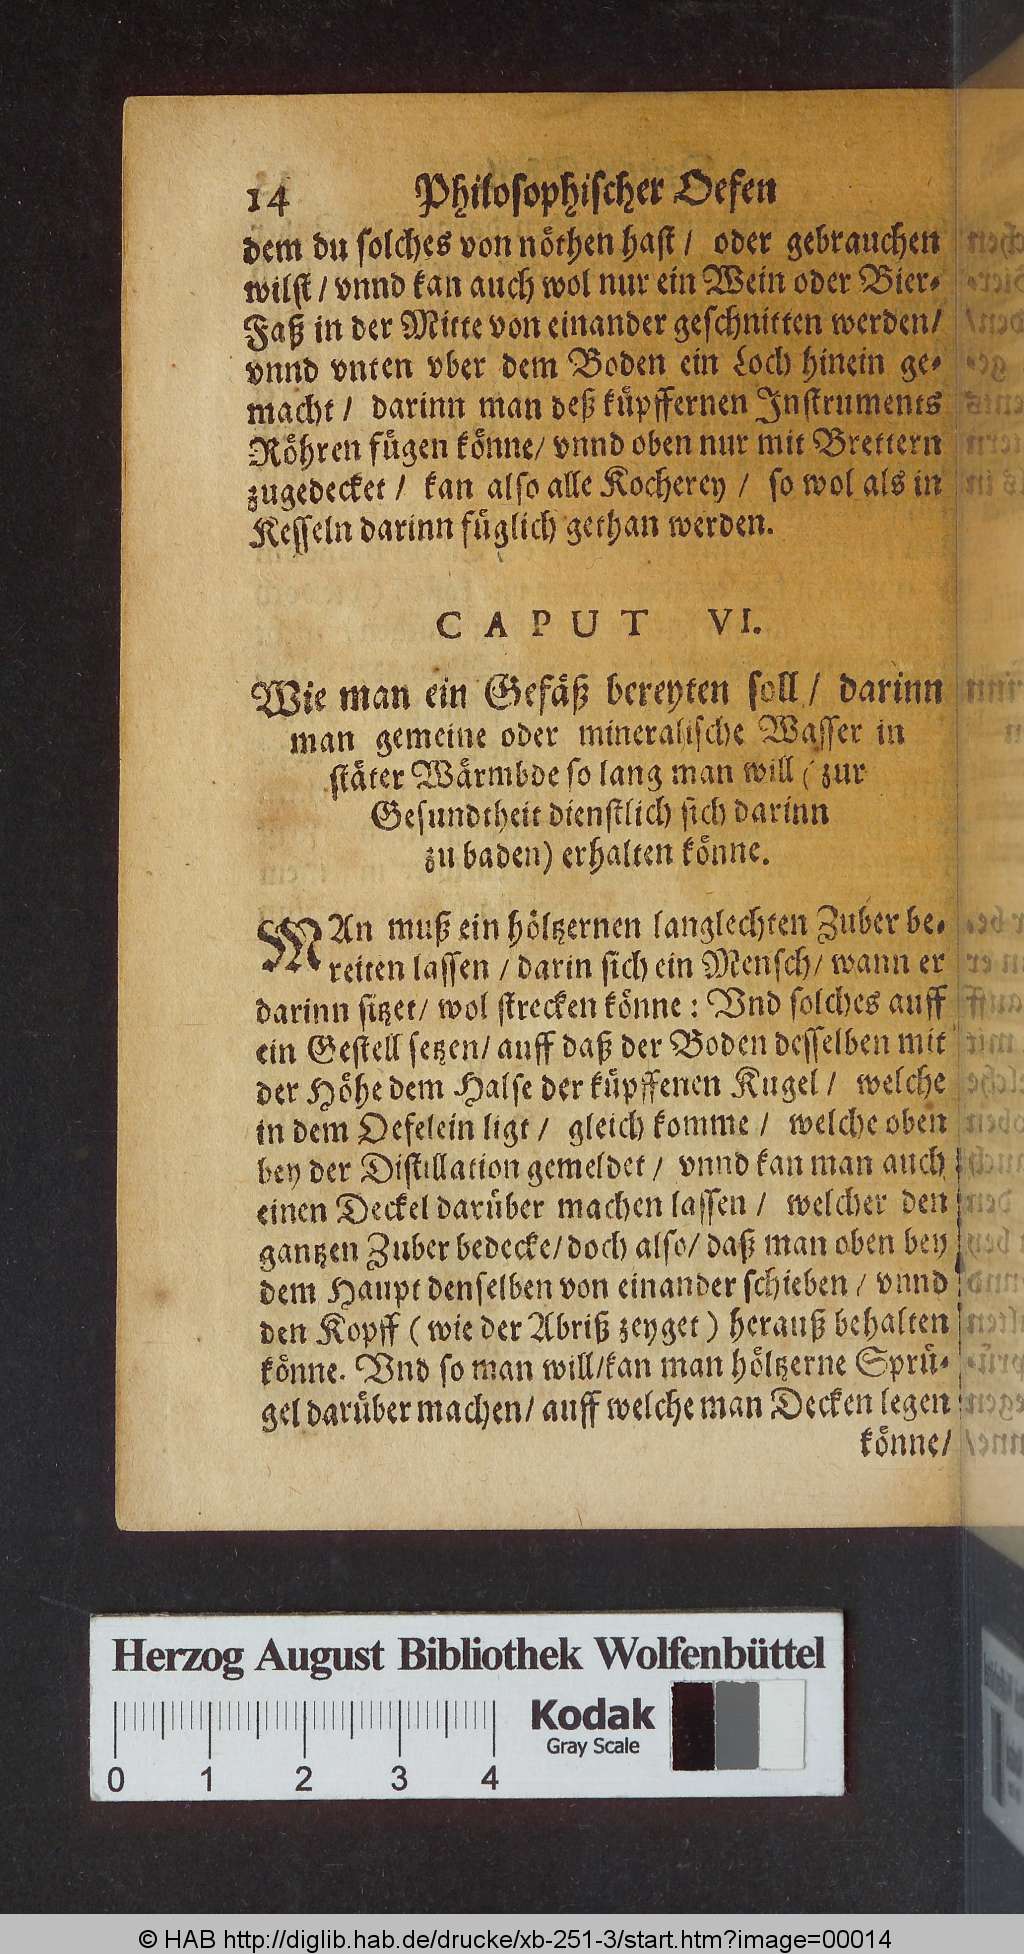 14 Philosophischer Oefen
dem du solches von nöthen hast / oder gebrauchen
wilst / vnnd kan auch wol nur ein Wein oder Bier-
Faß in der Mitte von einander geschnitten werden/
vnnd vnten vber dem Boden ein Loch hinein ge-
macht / darinn man deß küpffernen Instruments
Röhren fügen könne/ vnnd oben nur mit Brettern
zugedecket / kan also alle Kocherey / so wol als in
Kesseln darinn füglich gethan werden.
CAPUT VI.
Wie man ein Gefäß bereyten soll / darinn
man gemeine oder mineralische Wasser in
stäter Wärmbde so lang man will ( zur
Gesundtheit dienstlich sich darinn
zu baden) erhalten könne.
MAn muß ein höltzernen langlechten Zuber be-
reiten lassen / darin sich ein Mensch/ wann er
darinn sitzet/ wol strecken könne : Vnd solches auff
ein Gestell setzen/ auff daß der Boden desselben mit
der Höhe dem Halse der küpffenen Kugel / welche
in dem Oefelein ligt / gleich komme / welche oben
bey der Distillation gemeldet / vnnd kan man auch
einen Deckel darüber machen lassen / welcher den
gantzen Zuber bedecke/ doch also/ daß man oben bey
dem Haupt denselben von einander schieben / vnnd
den Kopff ( wie der Abriß zeyget ) herauß behalten
könne. Vnd so man will/kan man höltzerne Sprü-
gel darüber machen/ auff welche man Decken legen
könne/
Herzog August Bibliothek Wolfenbüttel
Kodak
Gray Scale
0 1 2 3 4
© HAB http://diglib.hab.de/drucke/xb-251-3/start.htm?image=00014